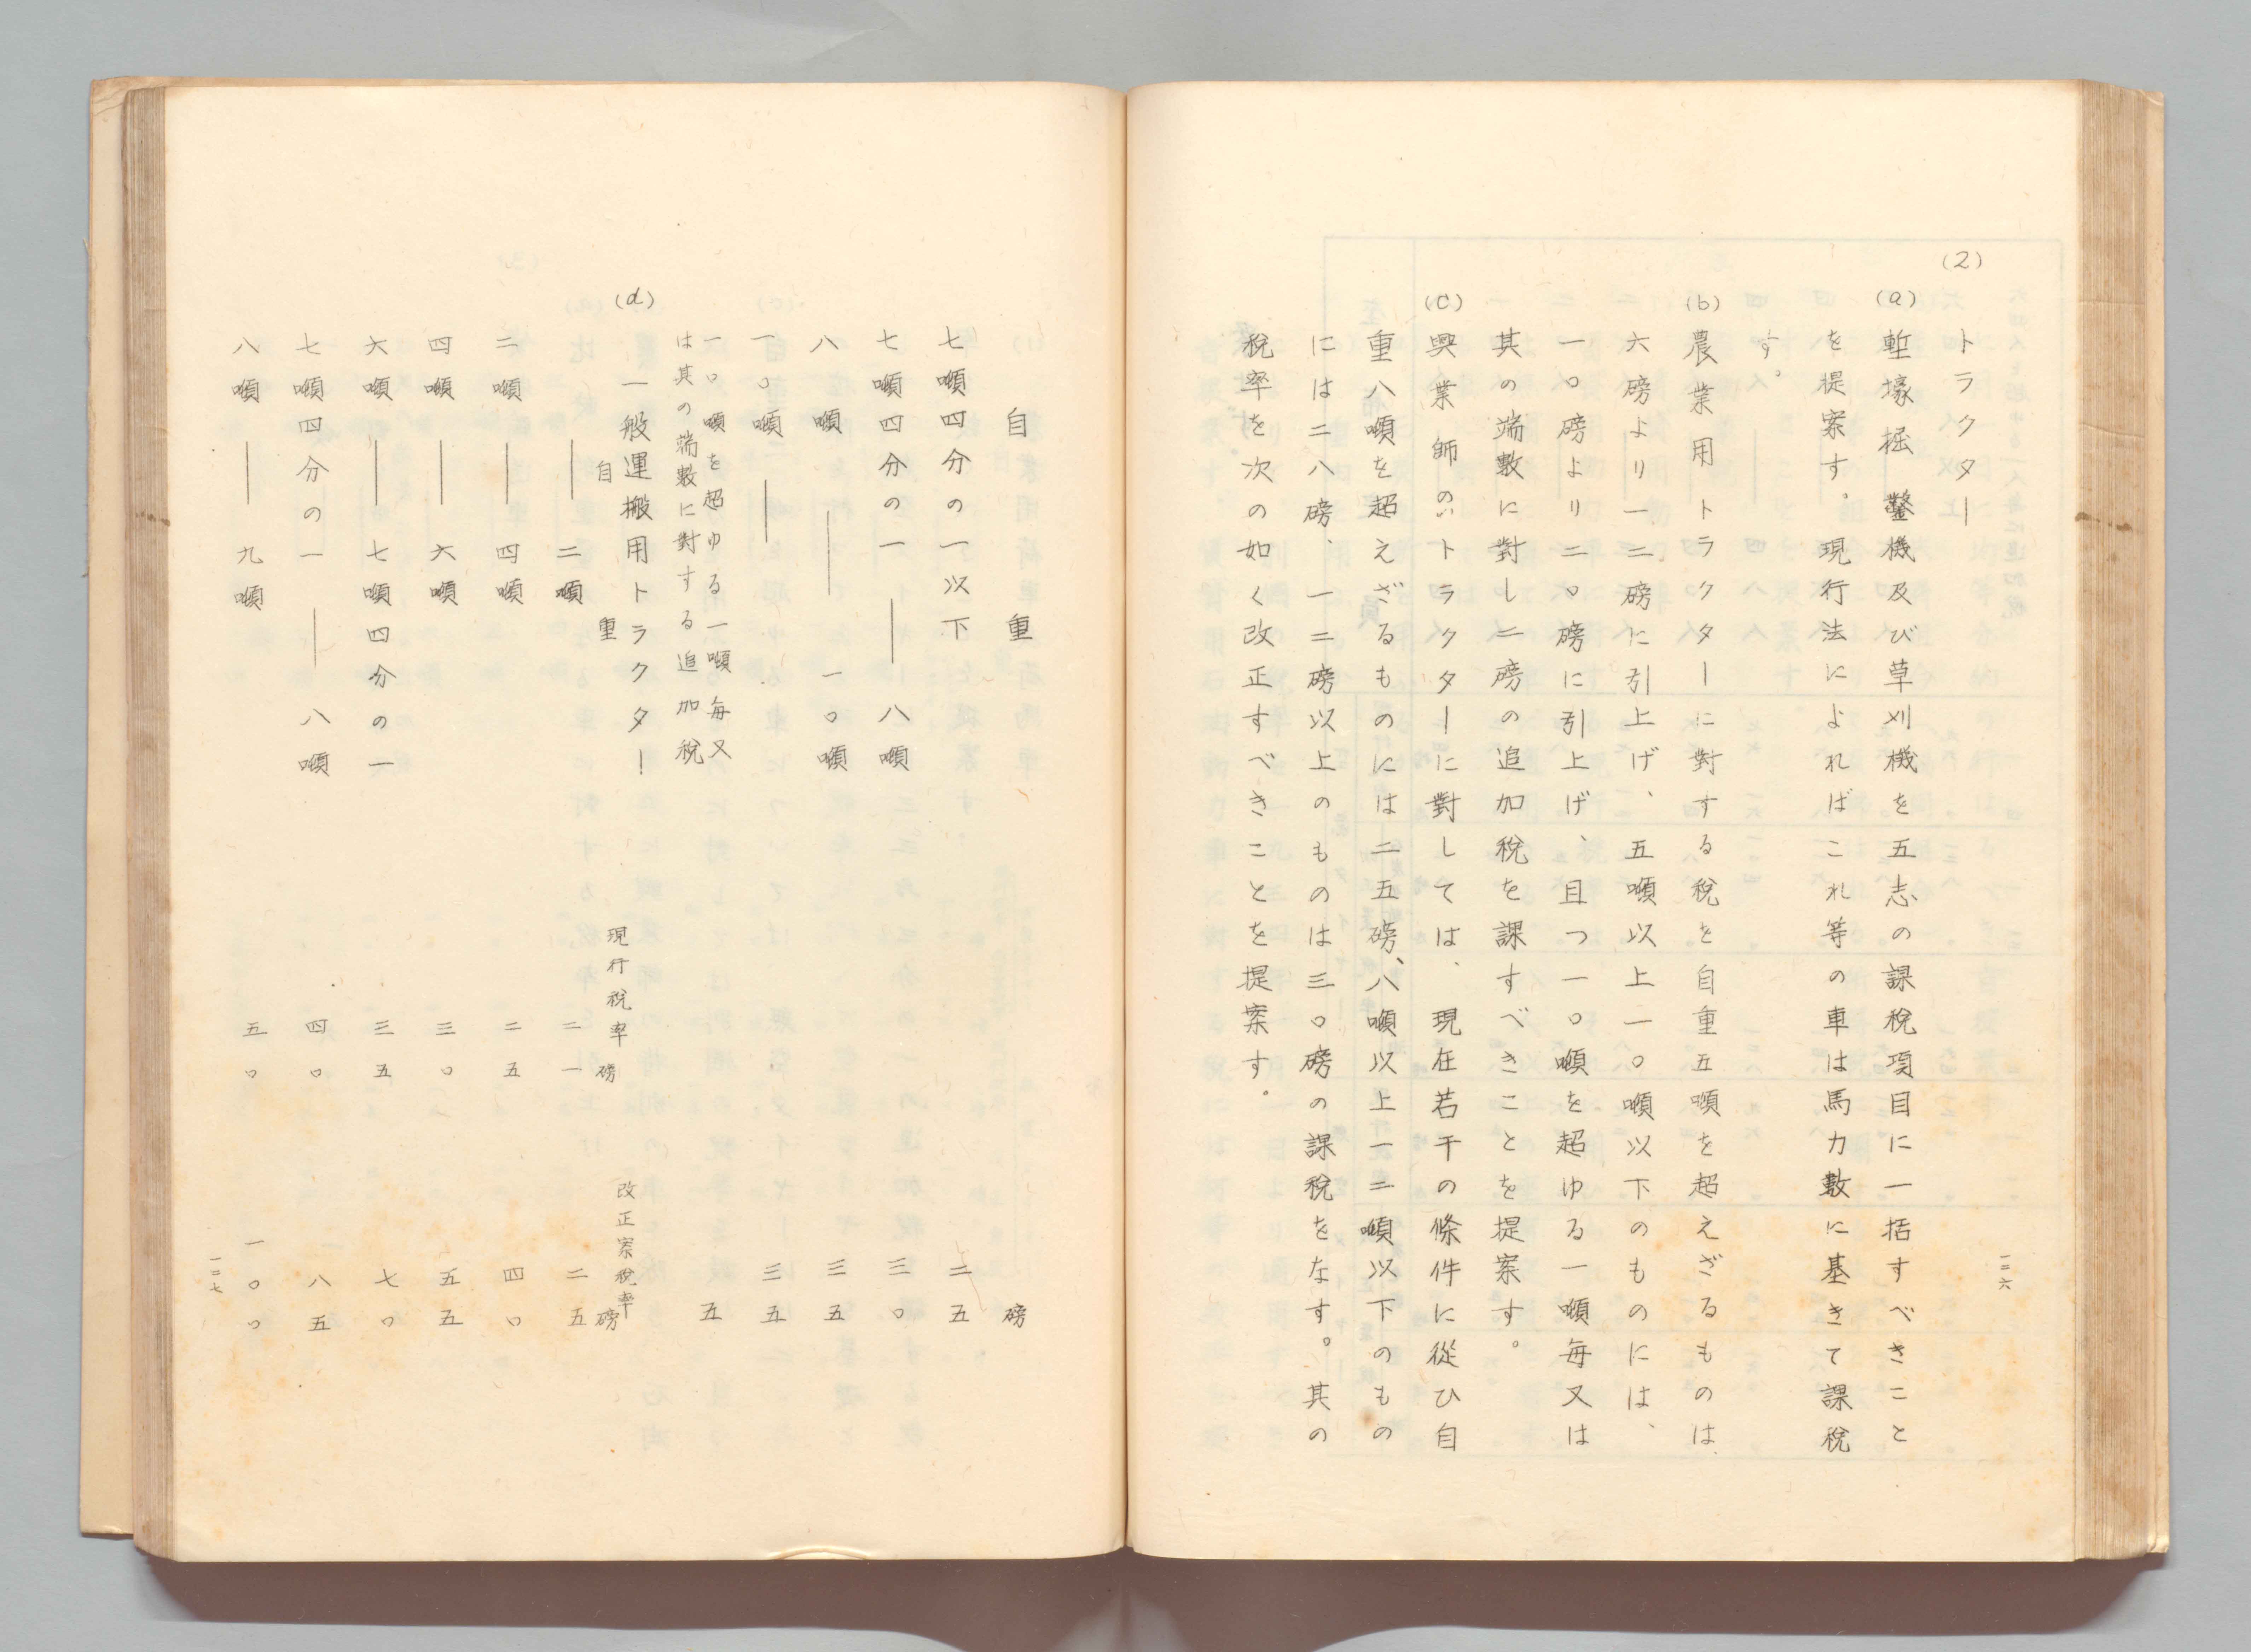 一二六
(2) トラクター
(a) 塹壕掘鑿機及び草刈機を五志の課税項目に一括すべきこと
を提案す。現行法によればこれ等の車は馬力數に基きて課税
す。
(b) 農業用トラクターに對する税を自重五噸を超えざるものは、
六磅より一二磅に引上げ、五噸以上一〇噸以下のものには、
一〇磅より二〇磅に引上げ、且つ一〇噸を超ゆる一噸每又は
其の端數に對し二磅の追加税を課すべきことを提案す。
(c) 興業師のトラクターに對しては、現在若干の條件に從ひ自
重八噸を超えざるものには二五磅、八噸以上一二噸以下のもの
には二八磅、一二磅以上のものは三〇磅の課税をなす。其の
税率を次の如く改正すべきことを提案す。
自重 磅
七噸四分の一以下 二五
七噸四分の一――八噸 三〇
八噸――一〇噸 三五
一〇噸―― 三五
一〇噸を超ゆる一噸每又
は其の端數に對する追加税 五
(d) 一般運搬用トラクター
自重 現行税率 磅 改正案税率 磅
――二噸 二一 二五
二噸――四噸 二五 四〇
四噸――六噸 三〇 五五
六噸――七噸四分の一 三五 七〇
七噸四分の一――八噸 四〇 八五
八噸――九噸 五〇 一〇〇
一二七